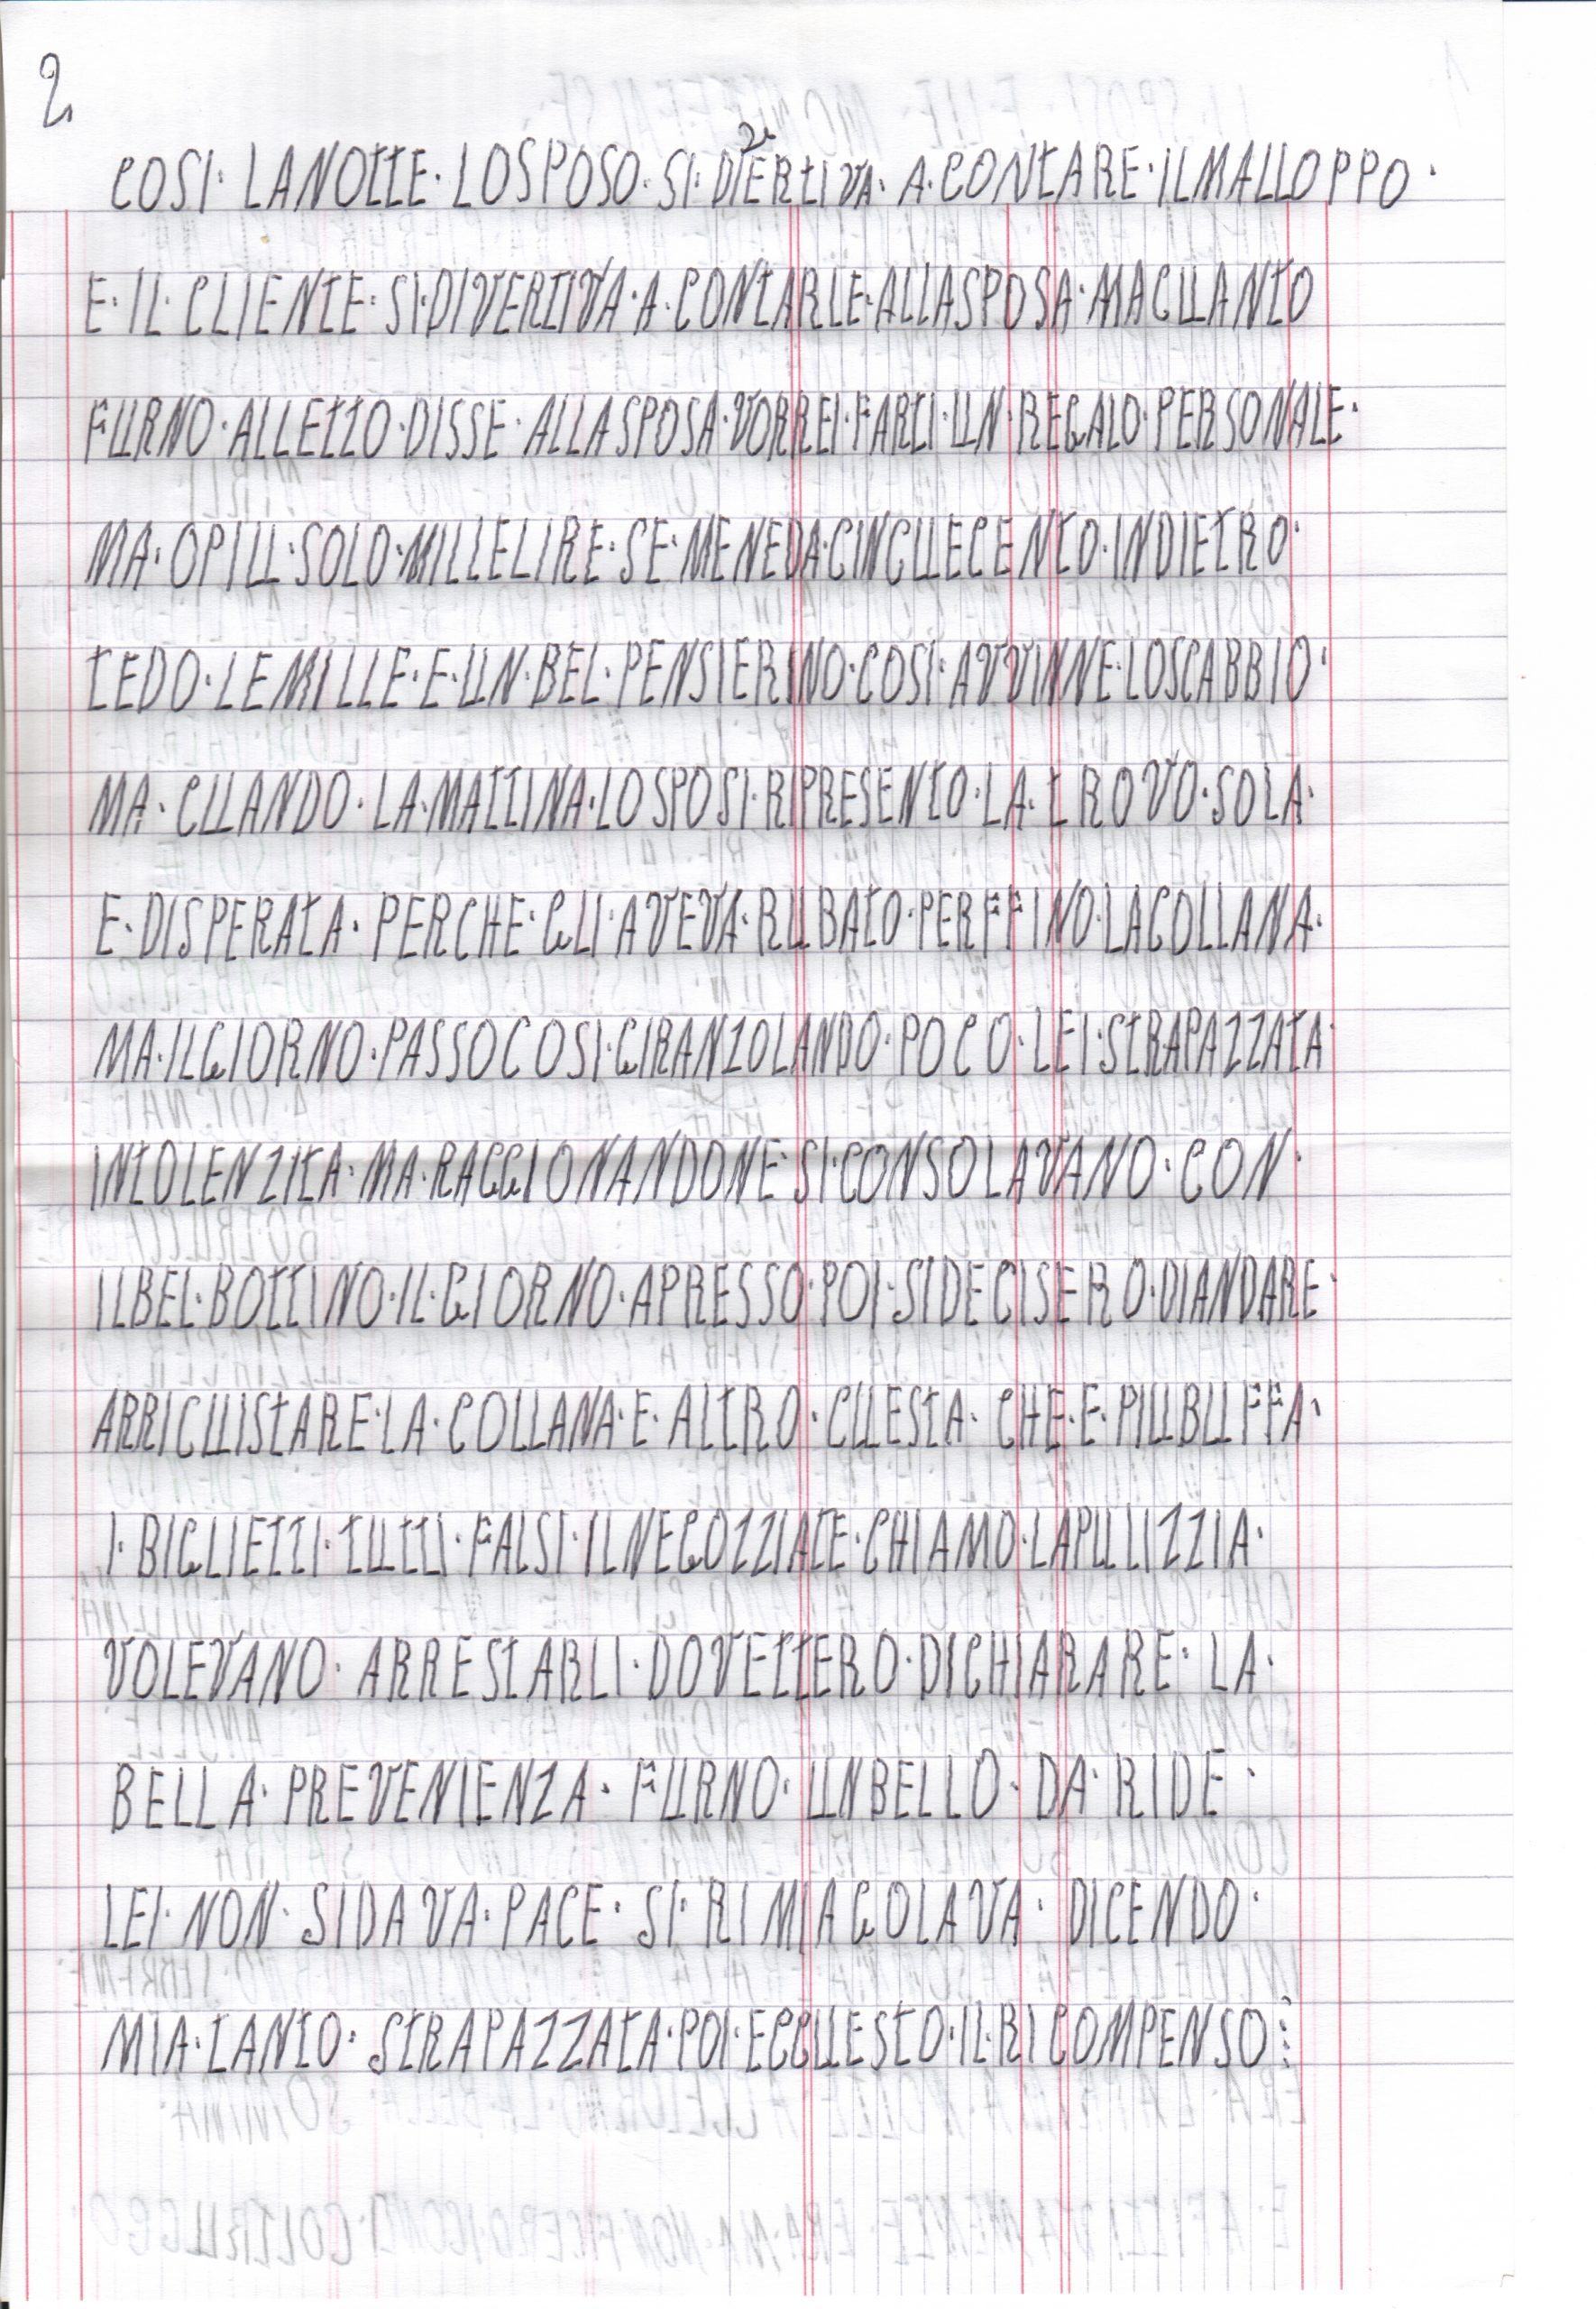 2
COSI· LANOTTE· LOSPOSO· SI· DIVERTIVA· A· CONTARE· ILMALLOPPO·
E· IL· CLIENTE· SI· DIVERTIVA· A· CONTARLE· ALLASPOSA· MACUANTO
FURNO· ALLETTO· DISSE· ALLASPOSA· VORREI· FARTI· UN· REGALO· PERSONALE·
MA· OPIU· SOLO· MILLELIRE· SE· MENEDA· CINCUECENTO· INDIETRO·
TEDO· LEMILLE· E· UN· BEL· PENSIERINO· COSI· AVVINNE· LOSCABBIO·
MA· CUANDO· LA· MATTINA· LOSPOSI· RIPRESENTO· LA· TROVO· SOLA·
E· DISPERATA· PERCHE· GLI· AVEVA· RUBATO· PERFFINO· LACOLLANA·
MA· ILGIORNO· PASSOCOSI· GIRANZOLANDO· POCO· LEI· STRAPAZZATA·
INTOLENZITA· MA· RAGGIONANDONE· SI· CONSOLAVANO· CON·
ILBEL· BOTTINO· IL· GIORNO· APRESSO· POI· SIDECISERO· DIANDARE·
ARRICUISTARE· LA· COLLANA· E· ALTRO· CUESTA· CHE· E· PIUBUFFA·
I· BIGLIETTI· TUTTI· FALSI· ILNEGOZZIATE· CHIAMO· LAPULIZZIA·
VOLEVANO· ARRESTARLI· DOVETTERO· DICHIARARE· LA·
BELLA· PREVENIENZA· FURNO· UNBELLO· DA· RIDE·
LEI· NON· SIDAVA· PACE· SI· RIMIAGOLAVA· DICENDO·
MIA· TANTO· STRAPAZZATA· POI· ECCUESTO· IL· RICOMPENSO⋮